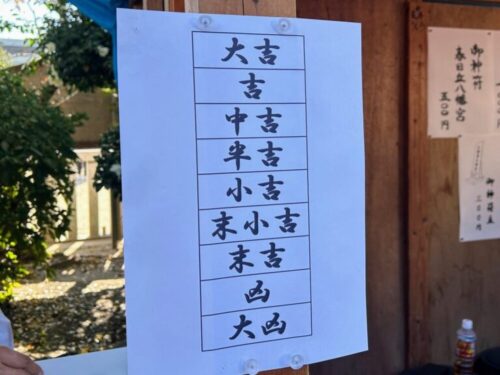 大吉
吉
中吉
半吉
小吉
末小吉
末吉
凶
大凶
御神符
春日丘八幡宮
五〇〇円
御神箱
三〇〇円